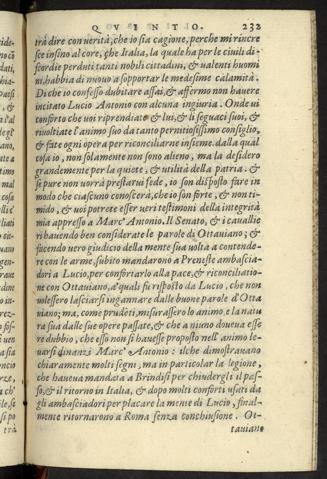 QVINTO. 232
trà dire con uerità, che io sia cagione, perche mi rincre
sce insino al core, che Italia, la quale ha per le ciuili di-
scordie perduti tanti nobili cittadini, & ualenti huomi
ni, habbia di nuouo a sopportar le medesime calamità.
Di che io confesso dubitare assai, & affermo non hauere
incitato Lucio Antonio con alcuna ingiuria. Onde ui
conforto che uoi riprendiate & lui, & li seguaci suoi, &
riuoltiate l'animo suo da tanto perniciosissimo consiglio,
& fate ogni opera per riconciliarne insieme. dalla qual
cosa io, non solamente non sono alieno, ma la desidero
grandemente per la quiete, & utilità della patria. &
se pure non uorrà prestarui fede, io son disposto fare in
modo che ciascuno conoscerà, che io son forte, & non ti-
mido, & uoi potrete esser ueri testimoni della integrità
mia appresso a Marc'Antonio. Il Senato, & i cauallie
ri hauendo ben considerate le parole di Ottauiano; &
facendo uero giudicio della mente sua uolta a contende-
re con le arme. subito mandarono a Preneste ambascia-
dori a Lucio, per confortarlo alla pace, & riconciliatio-
ne con Ottauiano, a' quali fu risposto da Lucio, che non
uolessero lasciarsi ingannare dalle buone parole d'Otta
uiano; ma, come prudēti, misurassero lo animo e la natu
ra sua dalle sue opere passate, & che a niuno doueua esse
re dubbio, che esso non si hauesse proposto nell'animo le-
uarsi dinanzi Marc'Antonio: ilche dimostrauano
chiaramente molti segni, ma in particolar la legione,
che haueua mandata a Brindisi per chiudergli il pas-
so, & il ritorno in Italia, & dopo molti conforti usati da
gli ambasciadori per placare la mente di Lucio, final-
mente ritornarono a Roma senza conchiusione. Ot-
tauiano